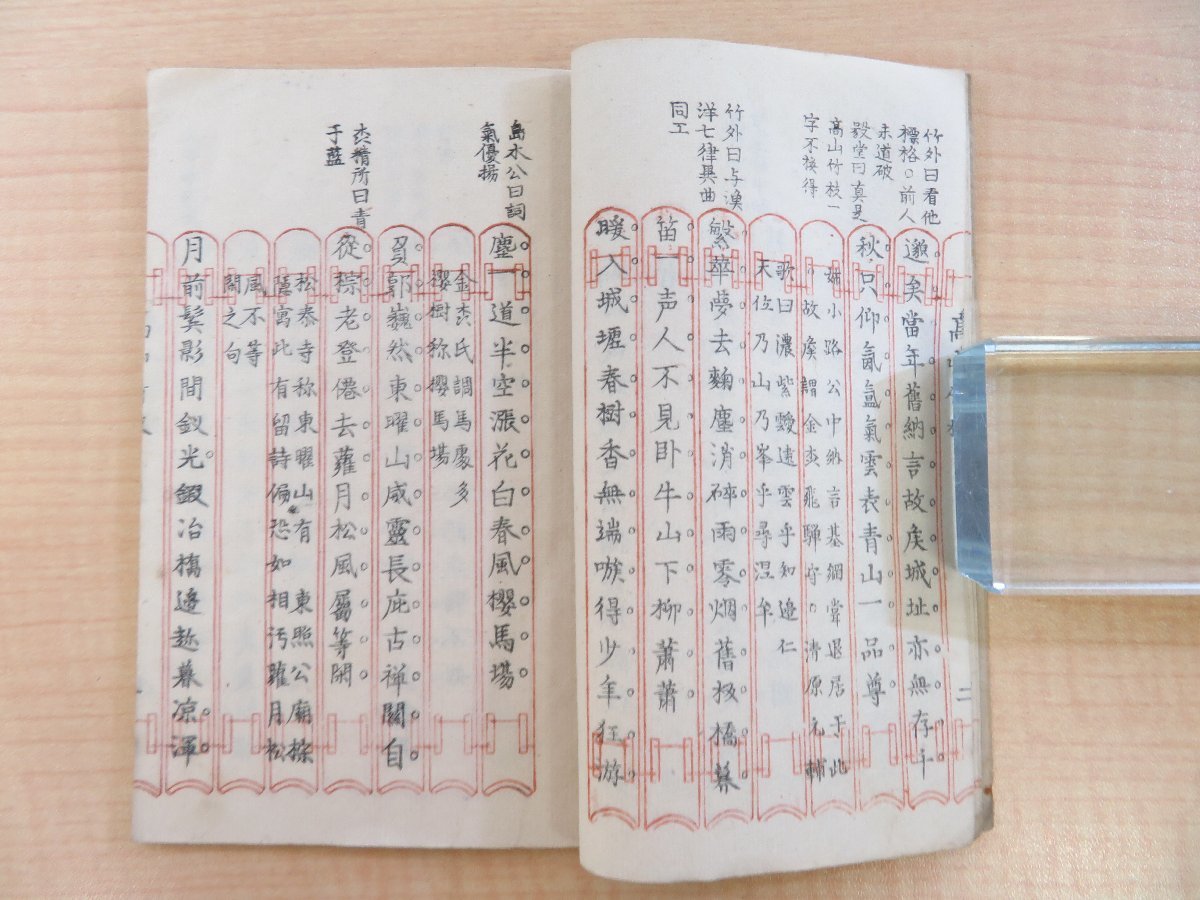 竹外曰看他
標格〇前人
未道破
毅堂曰真是
高山竹枝一
字不挨得
竹外曰与漁
洋七律異曲
同工
邈矣當年舊納言故侯城址亦無存千
秋只仰氤氳氣雲表青山一品尊
姉小路公中納言基綱嘗退居于此
故侯謂金森飛騨守〇清原元輔
歌曰濃紫靉逮雲乎知邊仁
天位乃山乃峯乎尋湼牟
繁華夢去麴塵消碎雨零烟舊板橋暮
笛一声人不見卧牛山下柳蕭蕭
暖入城壥春樹香無端嗾得少年狂游
島水公曰詞
氣優揚
森精所曰青
于藍
塵一道半空漲花白春風櫻馬場
金森氏調馬處多
櫻樹称櫻馬場
負郭巍然東曜山威靈長庇古禅關自
從棕老登僊去蘿月松風屬等閑
松泰寺称東曜山有東照公廟棕
隱寓此有留詩偏恐如相汚蘿月松
風不等
閑之句
月前鬂影間釵光鍜冶橋邊趁暮凉渾